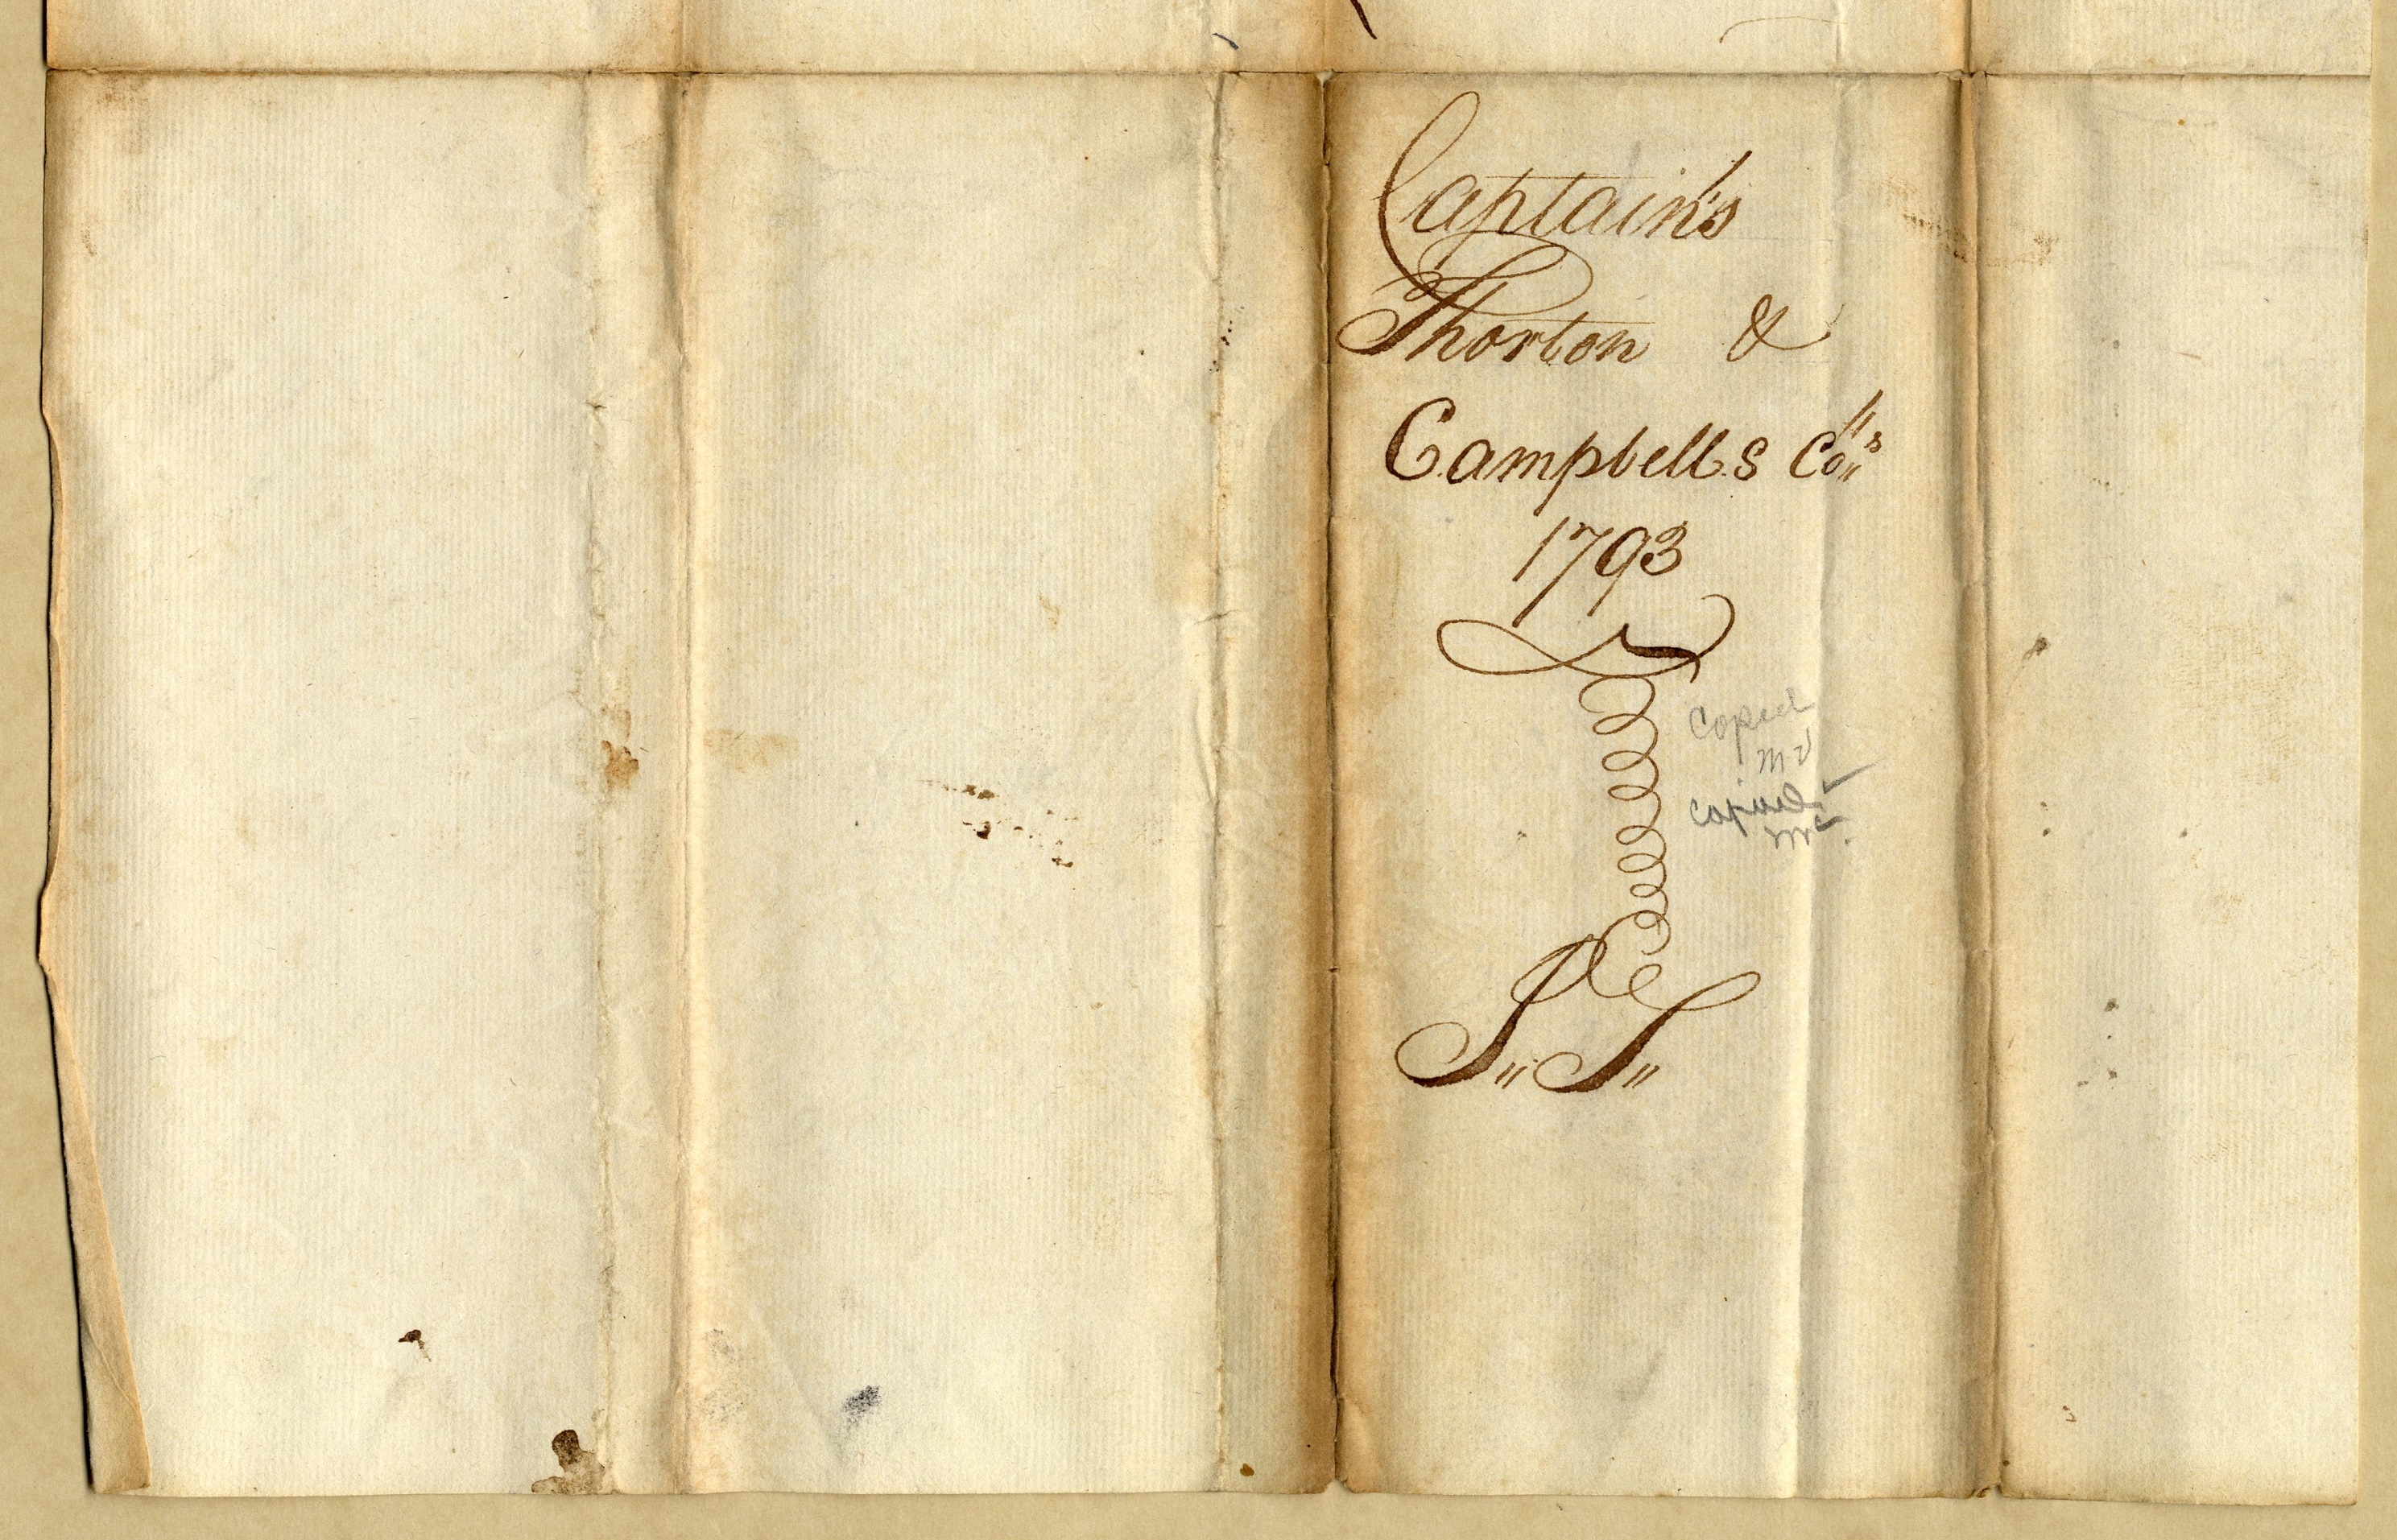 Captain's
Thorton &
Campbells Co"s
1793
Copied
copied
S" S"